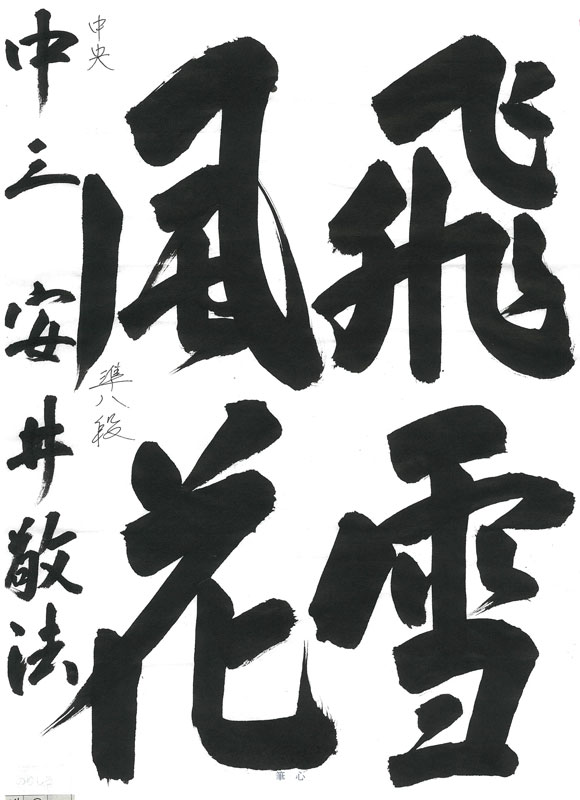 飛雪
風花
中央
準八段
中三 安井敬法
筆心